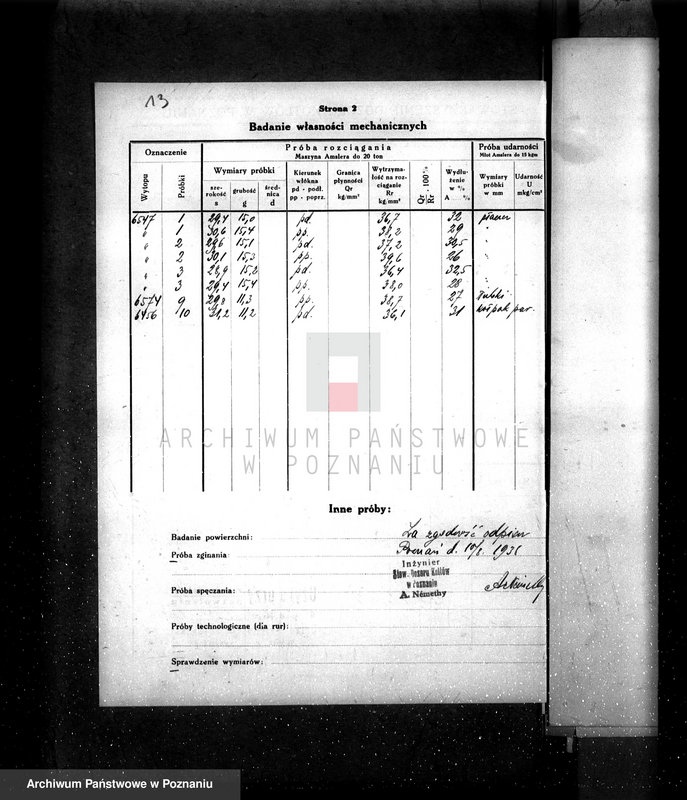 13
Strona 2
Badanie własności mechanicznych
Oznaczenie
Próba rozciągania
Maszyna Amslera do 20 ton
Próba udarności
Młot Amslera do 15 kgm
Wytopu
Próbki
Wymiary próbki
szerokość s
grubość g
średnica d
Kierunek włókna pd - podł. pp - poprz.
Granica płynności Qr kg/mm²
Wytrzymałość na rozciąganie Rr kg/mm²
Qr/Rr · 100 %
Wydłużenie w % A %
Wymiary próbki w mm
Udarność U mkg/cm²
6547 1 29,4 15,0 pd. 36,7 32
" 1 30,6 15,4 pp. 38,2 29 "
" 2 29,6 15,1 pd. 37,2 30,5 "
" 2 30,1 15,3 pp. 39,6 26 "
" 3 28,9 15,2 pd. 36,4 32,5 "
" 3 29,4 15,4 pp. 38,0 28 "
6574 9 29,8 11,3 pp. 38,7 27
6456 10 31,2 11,2 pd. 36,1 31 par.
ARCHIWUM PAŃSTWOWE
W POZNANIU
Inne próby:
Badanie powierzchni:
Za zgodność odpisu
Próba zginania
Poznań d. 10/8. 1931
Inżynier
Stow. Dozoru Kotłów
w Poznaniu
A. Némethy
Próba spęczania:
Próby technologiczne (dla rur):
Sprawdzenie wymiarów:
Archiwum Państwowe w Poznaniu